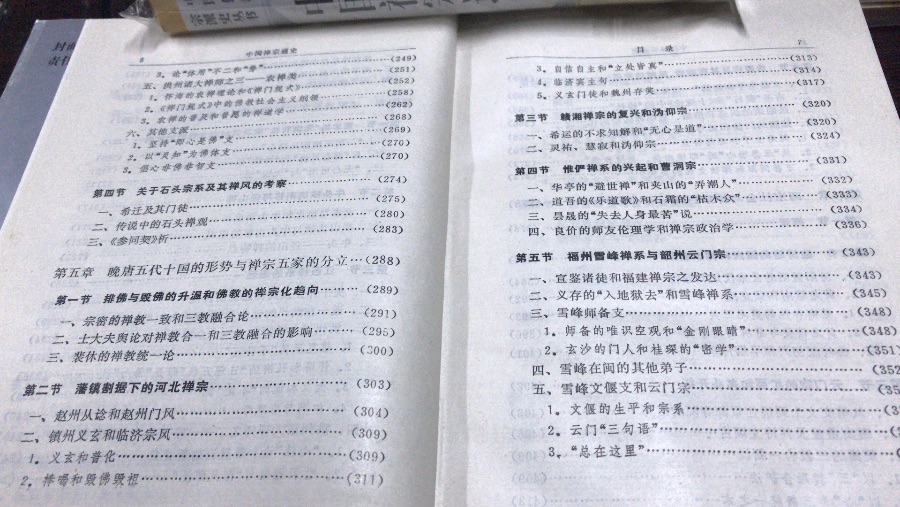 宗派史丛书
封面
责任
8 中国禅宗通史
3. 论“体用”不二和“尊” (249)
五、洪州诸大禅师之三——农禅类 (251)
1. 怀海的农禅理论和《禅门规式》 (252)
2. 《禅门规式》中的佛教社会主义纲领 (258)
3. 农禅的普及和普愿的禅道学 (262)
六、其他支派 (268)
1. 坚持“即心是佛”支 (269)
2. 以“灵知”为佛体支 (270)
3. 倡心非佛非智支 (270)
第四节 关于石头宗系及其禅风的考察 (274)
一、希迁及其门徒 (275)
二、传说中的石头禅观 (280)
三、《参同契》析 (283)
第五章 晚唐五代十国的形势与禅宗五家的分立 (288)
第一节 排佛与毁佛的升温和佛教的禅宗化趋向 (289)
一、宗密的禅教一致和三教融合论 (291)
二、士大夫舆论对禅教合一和三教融合的影响 (295)
三、裴休的禅教统一论 (300)
第二节 藩镇割据下的河北禅宗 (303)
一、赵州从谂和赵州门风 (304)
二、镇州义玄和临济宗风 (309)
1. 义玄和普化 (309)
2. 棒喝和毁佛毁祖 (311)
目录
3. 自信自主和“立处皆真” (313)
4. 临济宾主句 (314)
5. 义玄门徒和魏州存奖 (317)
第三节 赣湘禅宗的复兴和沩仰宗 (320)
一、希运的不求知解和“无心是道” (320)
二、灵祐、慧寂和沩仰宗 (324)
第四节 惟俨禅系的兴起和曹洞宗 (331)
一、华亭的“避世禅”和夹山的“弄潮人” (332)
二、道吾的《乐道歌》和石霜的“枯木众” (333)
三、昙晟的“失去人身最苦”说 (334)
四、良价的师友伦理学和禅宗政治学 (336)
第五节 福州雪峰禅系与韶州云门宗 (343)
一、宣鉴诸徒和福建禅宗之发达 (343)
二、义存的“入地狱去”和雪峰禅系 (345)
三、雪峰师备支 (348)
1. 师备的唯识空观和“金刚眼睛” (348)
2. 玄沙的门人和桂琛的“密学” (351)
四、雪峰在闽的其他弟子 (352
五、雪峰文偃支和云门宗
1. 文偃的生平和宗系
2. 云门“三句语”
3. “总在这里”